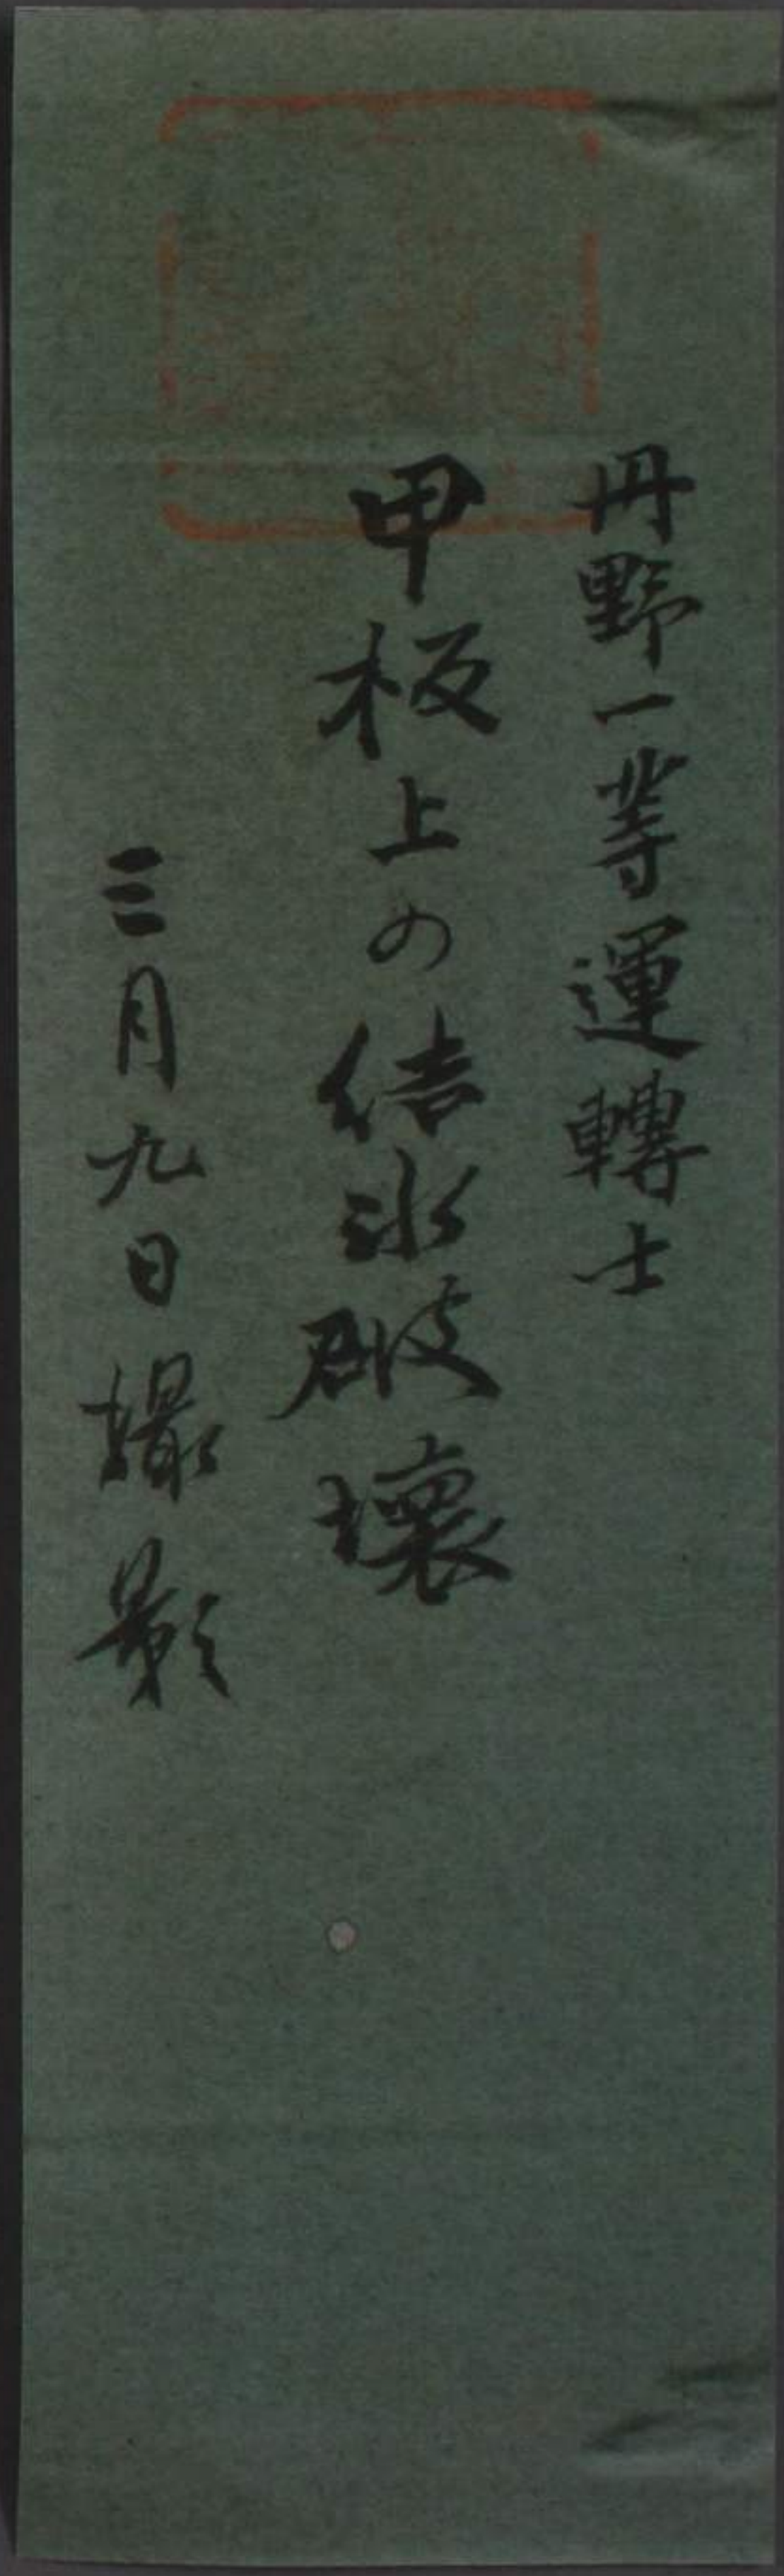 丹野一等運轉士
甲板上の結氷破壞
三月九日撮影